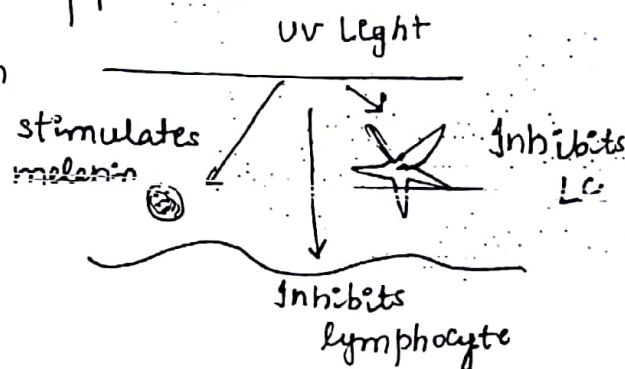 UV Light
stimulates
melanin
Inhibits
LC
Inhibits
lymphocyte